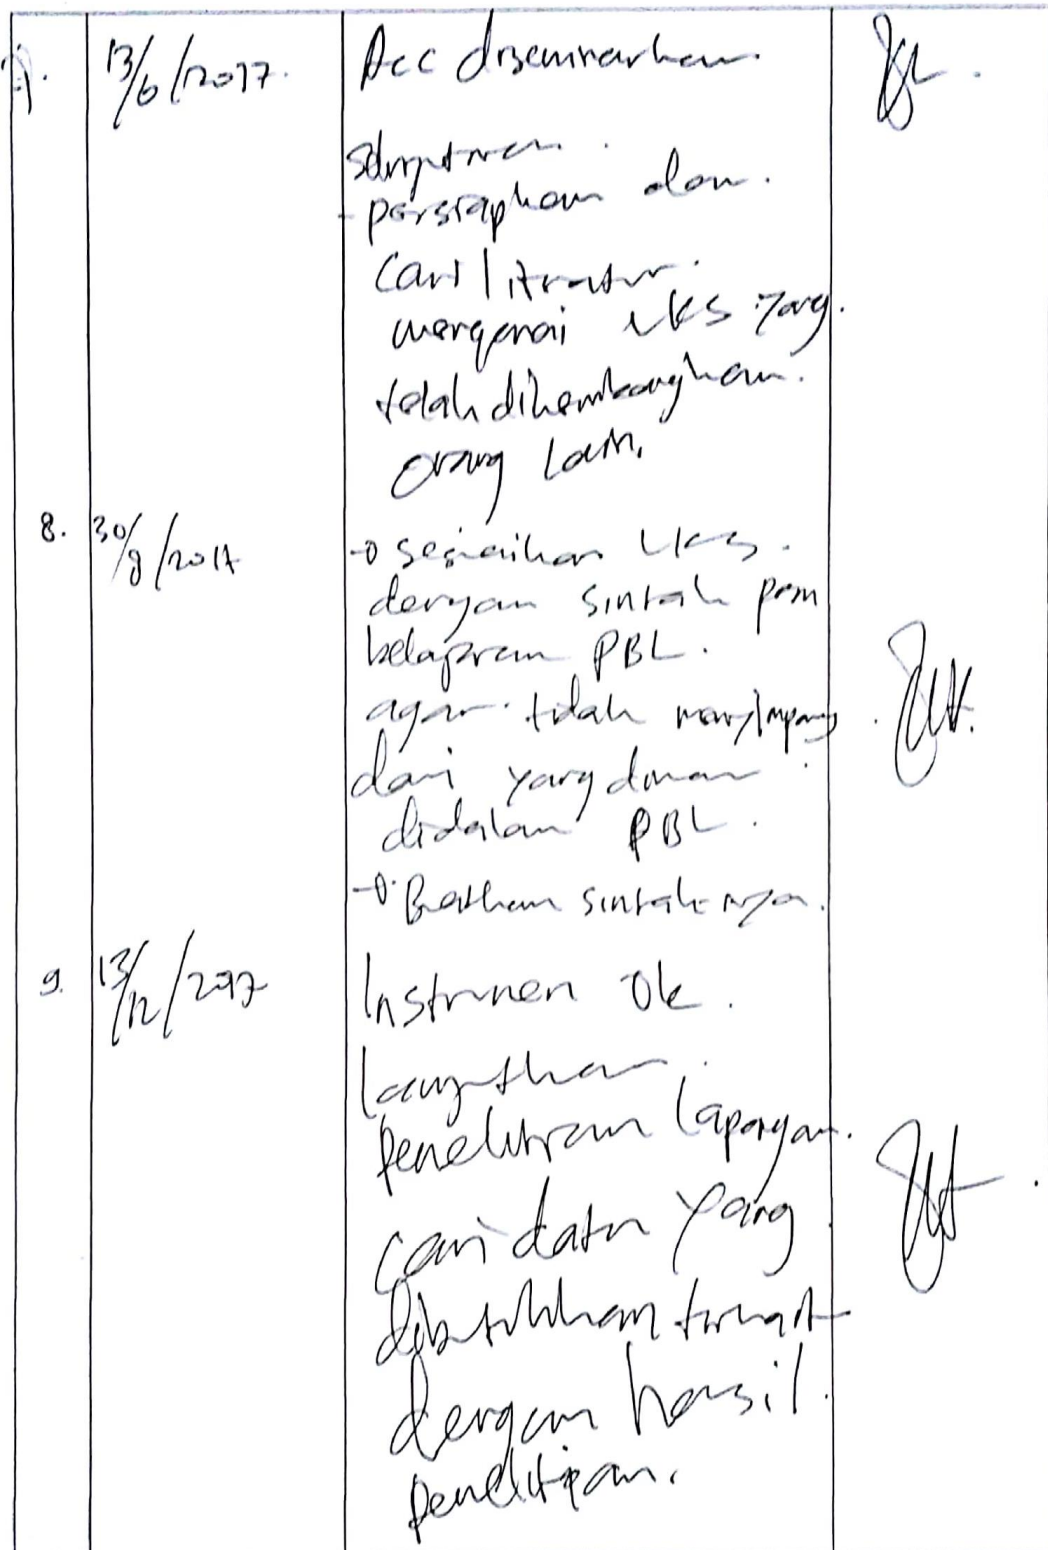 7. 13/6/2017. Acc diseminarkan.
Selanjutnya.
- persiapkan dan.
Cari literatur.
mengenai LKS yang.
telah dikembangkan.
orang lain.
8. 30/8/2017 → sesuaikan LKS.
dengan sintak pem
belajaran PBL.
agar tidak menyimpang.
dari yang
didalam PBL.
→ Buatkan sintaknya.
9. 13/12/2017 Instrumen Ok.
lanjutkan.
penelitian lapangan.
cari data yang
dibutuhkan terkait
dengan hasil.
penelitian.